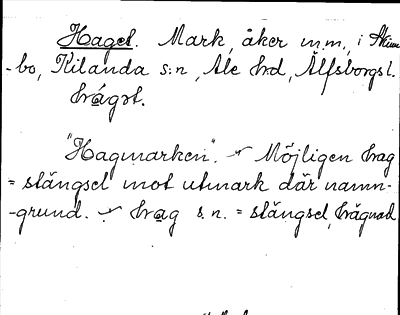 Haget. Mark, åker m.m., i Skim-
-bo, Kilanda s:n, Ale hd, Älfsborgs l.
"Hagmarken". Möjligen hag
= stängsel mot utmark där namn-
-grund. hag s.n. = stängsel, hägnad